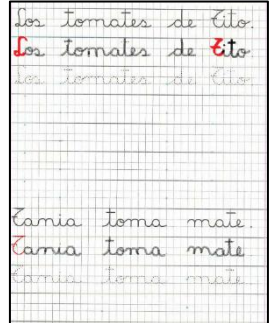 Los tomates de Tito.
Los tomates de Tito
Los tomates de Tito
Tania toma mate.
Tania toma mate
Tania toma mate.